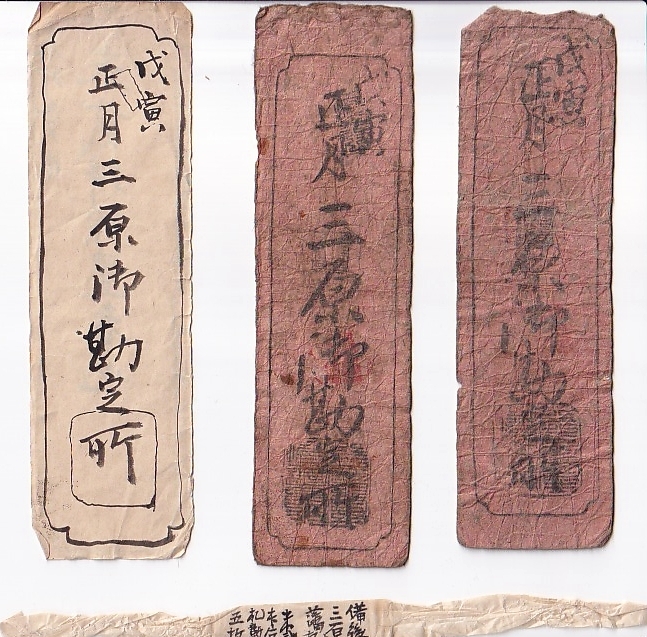 戊寅
正月三原御勘定所
寅
正月三原御勘定所
戊寅
正月三原御勘定所
備後
三原
藩
札
五